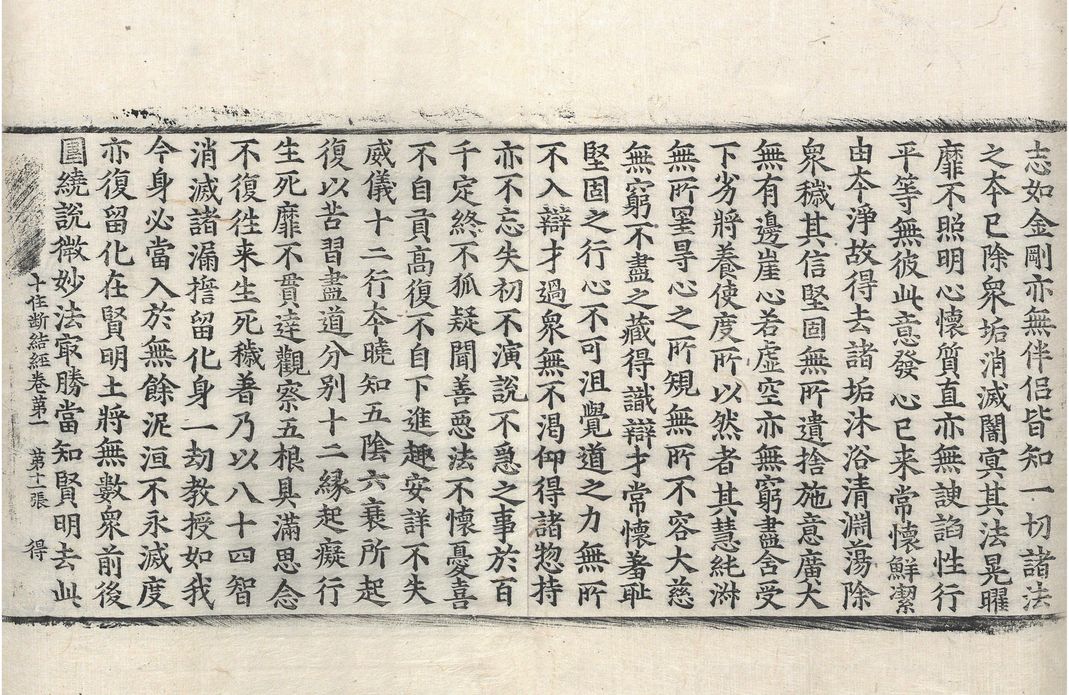 志如金剛亦無伴侣皆知一切諸法
之夲已除衆垢消滅闇㝠其法晃曜
靡不照明心懷質直亦無諛諂性行
平等無彼此意發心已来常懷鮮潔
由夲淨故得去諸垢沐浴清淵蕩除
衆穢其信堅固無所遺捨施意廣大
無有邊崖心若虚空亦無窮盡舍受
下劣將養使度所以然者其慧純淋
無所罣㝵心之所䂓無所不容大慈
無窮不盡之藏得識辯才常懷羞耻
堅固之行心不可沮覺道之力無所
不入辯才過衆無不渇仰得諸惣持
亦不忘失初不演說不急之事於百
千定終不狐疑聞善惡法不懷憂喜
不自貢高復不自下進趣安詳不失
威儀十二行夲曉知五陰六衰所起
復以苦習盡道分别十二縁起癡行
生死靡不貫逹觀察五根具滿思念
不復徃来生死穢著乃以八十四智
消滅諸漏擔留化身一劫教授如我
今身必當入於無餘泥洹不永滅度
亦復留化在賢明土將無數衆前後
圍繞說微妙法㝡勝當知賢明去此
十住断結經卷第一　第十一張　得